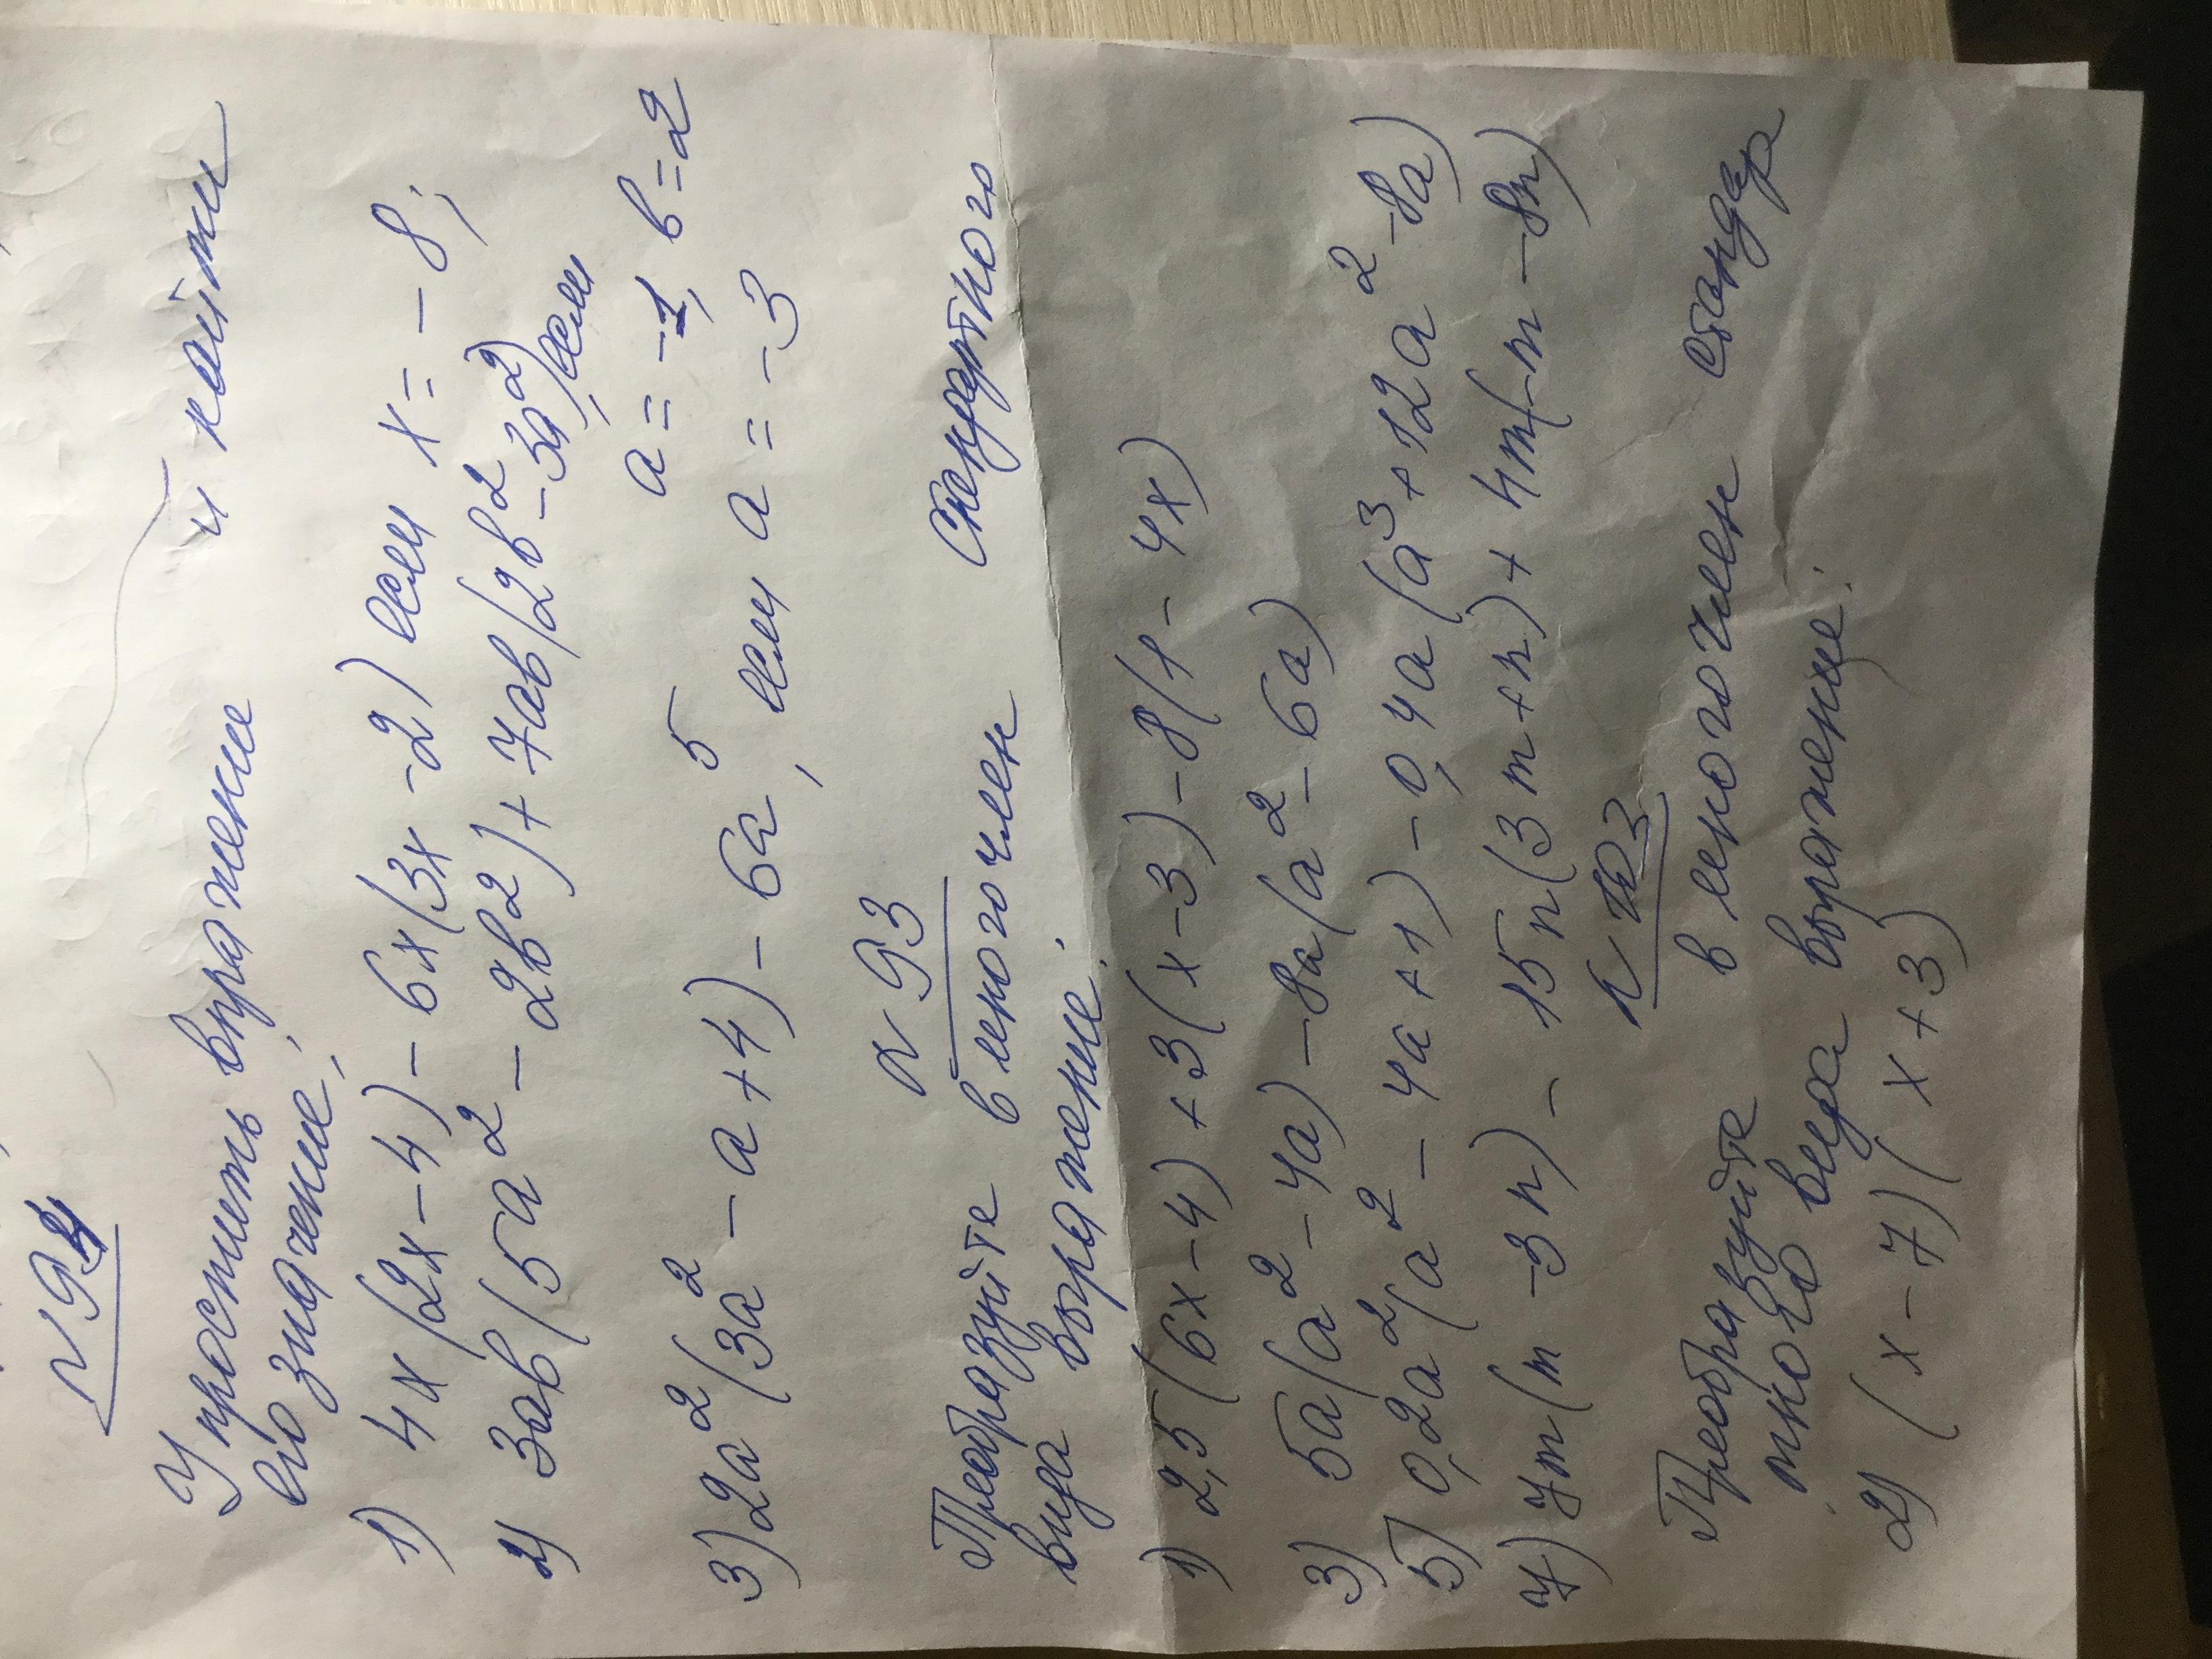 N94
Упростить выражение и найти
его значение:
1) 4x(2x-4) - 6x(3x-2) если x = -8;
2) 3ab(5a² - 2b²) + 7ab(2b² - 3a²), если
a = -1, b = 2
3) 2a²(3a² - a + 4) - 6a⁵, если a = -3
N 93
Преобразуйте в многочлен стндартного
вида выражение:
1) 2,5(6x-4) + 3(x-3) - 8(1-4x)
3) 5a(a²-4a) - 8a(a²-6a)
5) 0,2a²(a²-4a+1) - 0,4a(a³+12a²-8a)
7) 7m(m-3n) - 15n(3m+n) + 4m(-m-8n)
Преобразуйте в многочлен стандар
тного вида выражение:
2) (x-7)(x+3)